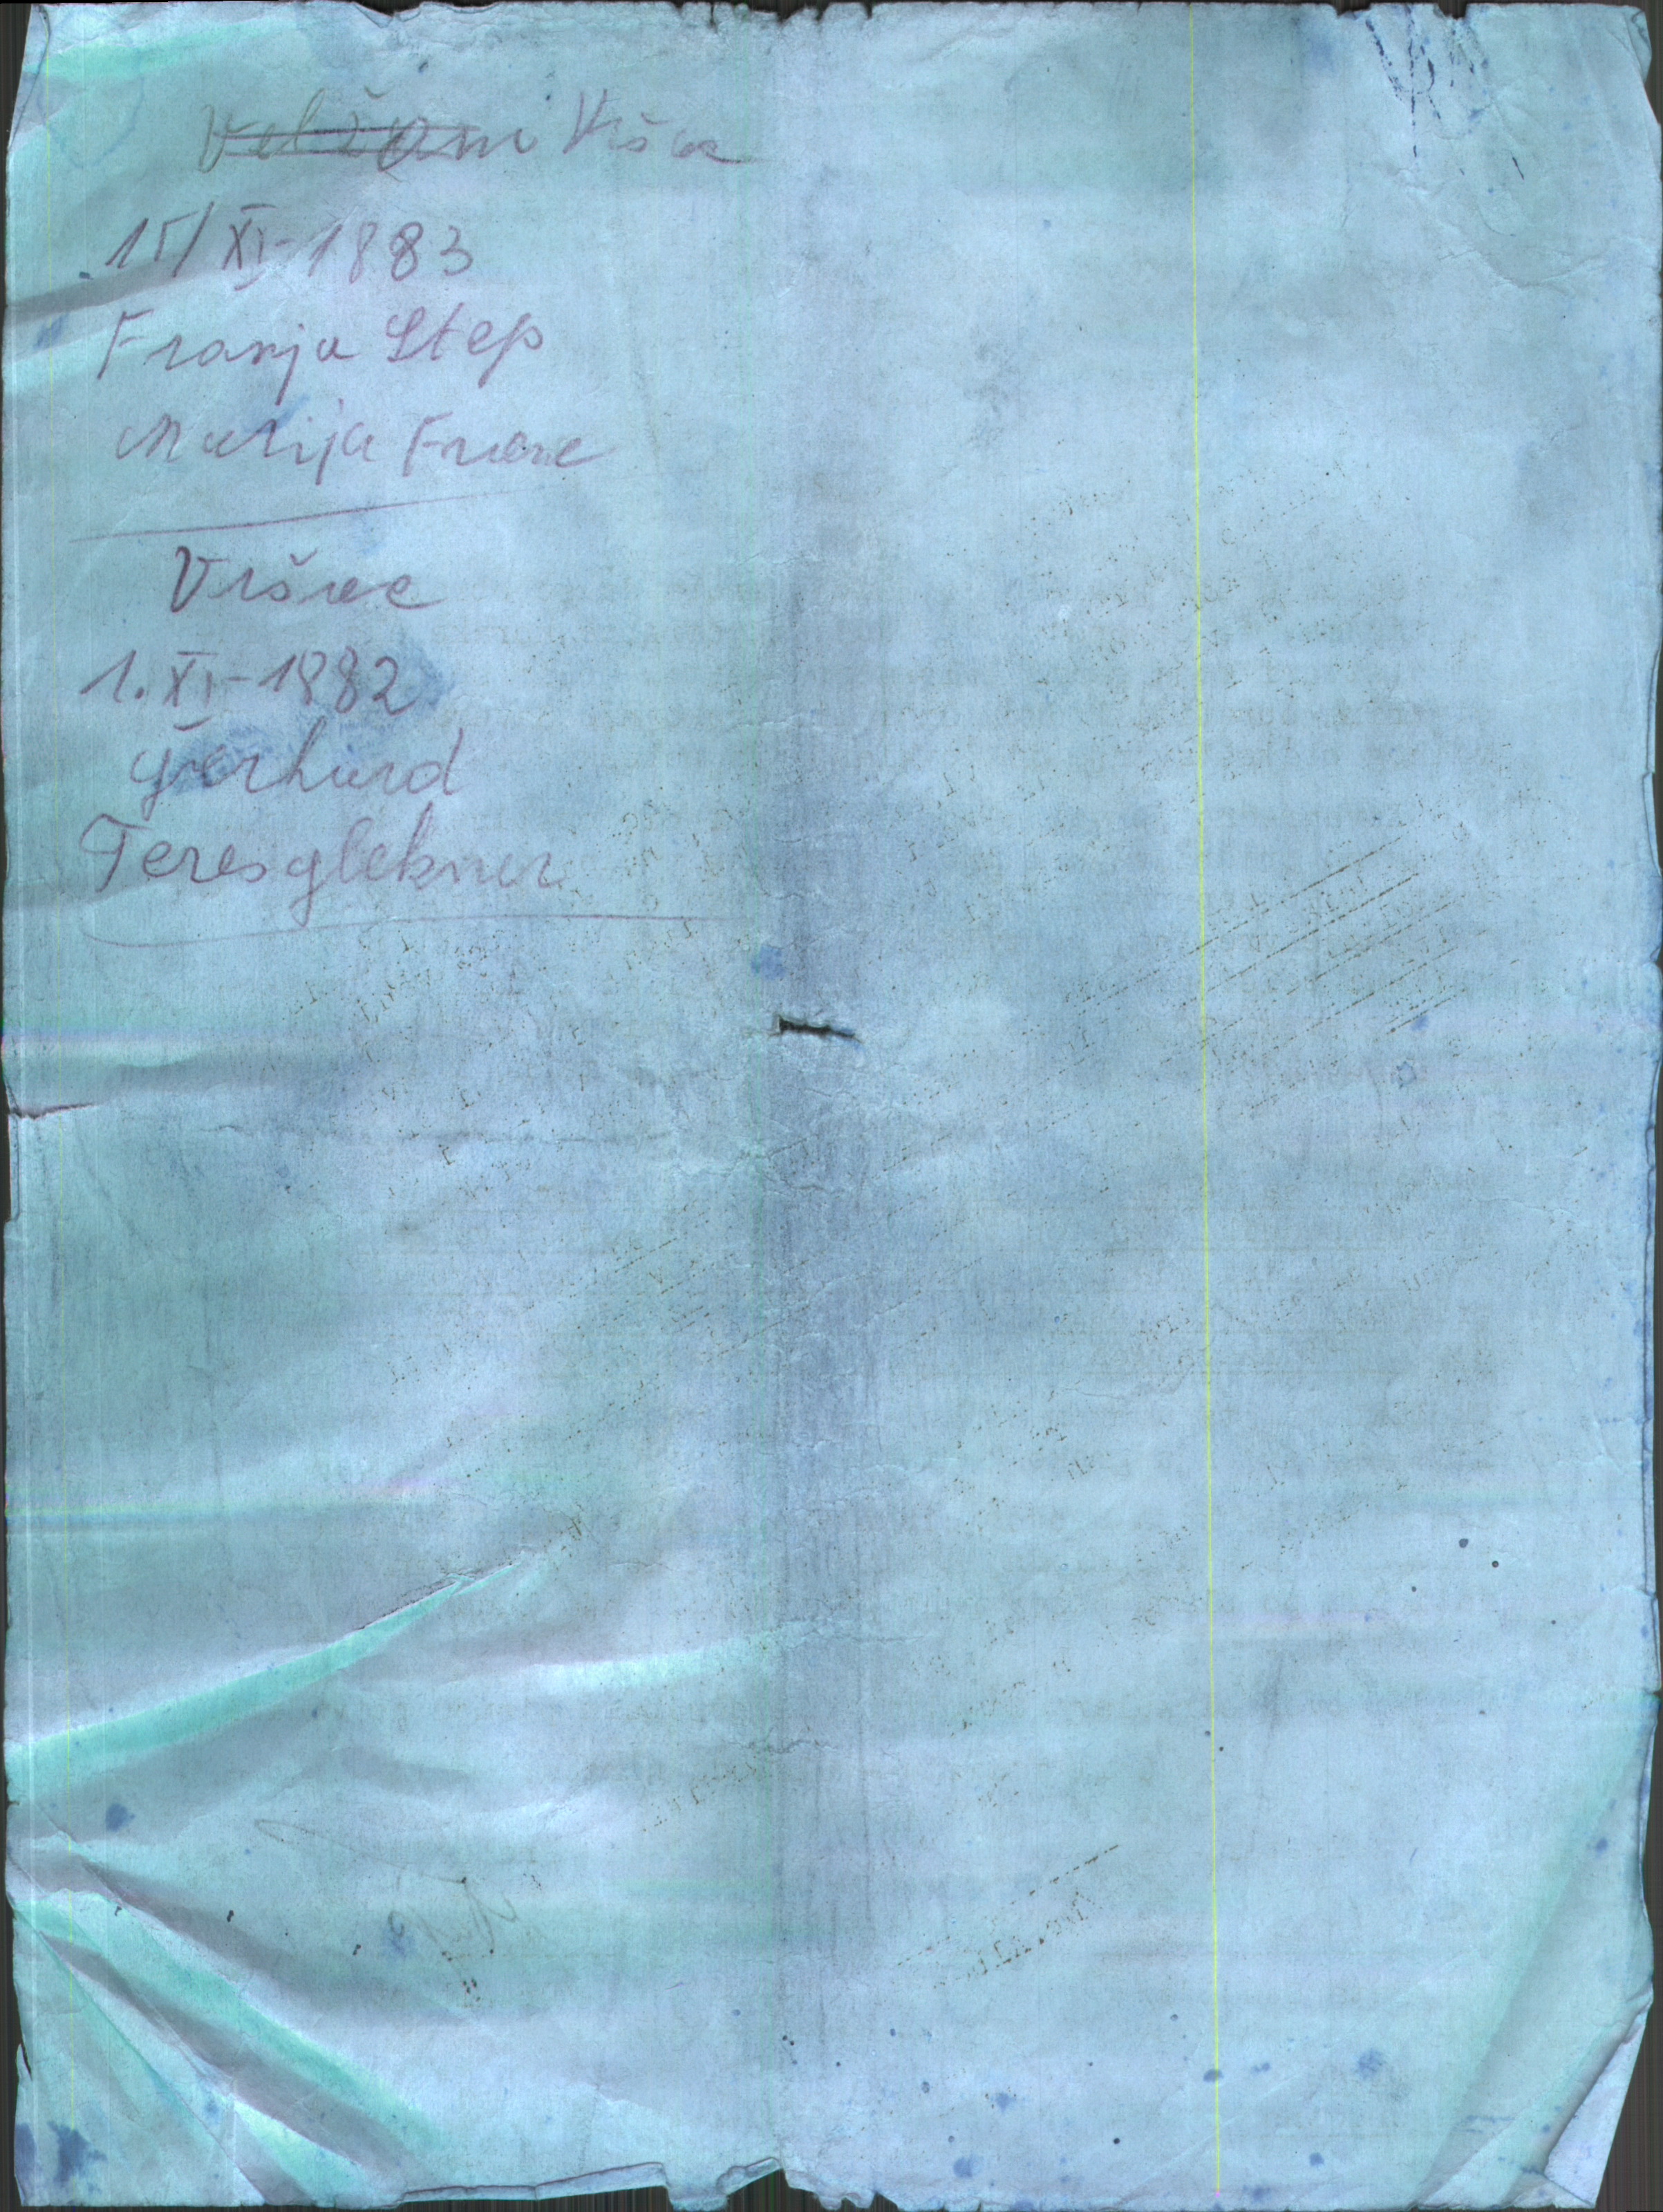 Vršac
15/XI-1883
Franja Step
Marija Franc
Vršac
1. XI-1882
Gerhard
Teres glekner